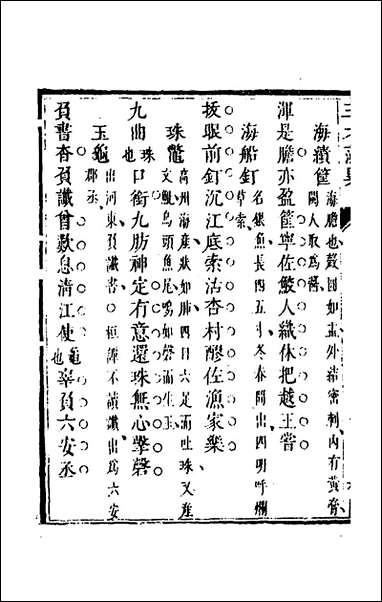 海績筐 海膽也殼圓如盂外結密刺內有黃膏
閩人取為醬
渾是膽亦盈筐寧佐鮫人織休把越王嘗
海船釘 名銀魚長四五寸冬春間出四明呼爛
草索
拔眼前釘沉江底索沽杏村醪佐漁家樂
珠鼈 高州海產狀如肺四目六足而吐珠又產
文魮鳥頭魚尾鳴如磬而生玉
九曲珠也口銜九肪神定有意還珠無心擊磬
玉龜 出河東負讖書○桓譚不讀讖出為六安
郡丞
負書杳負讖曾歎息清江使龜也辜負六安丞